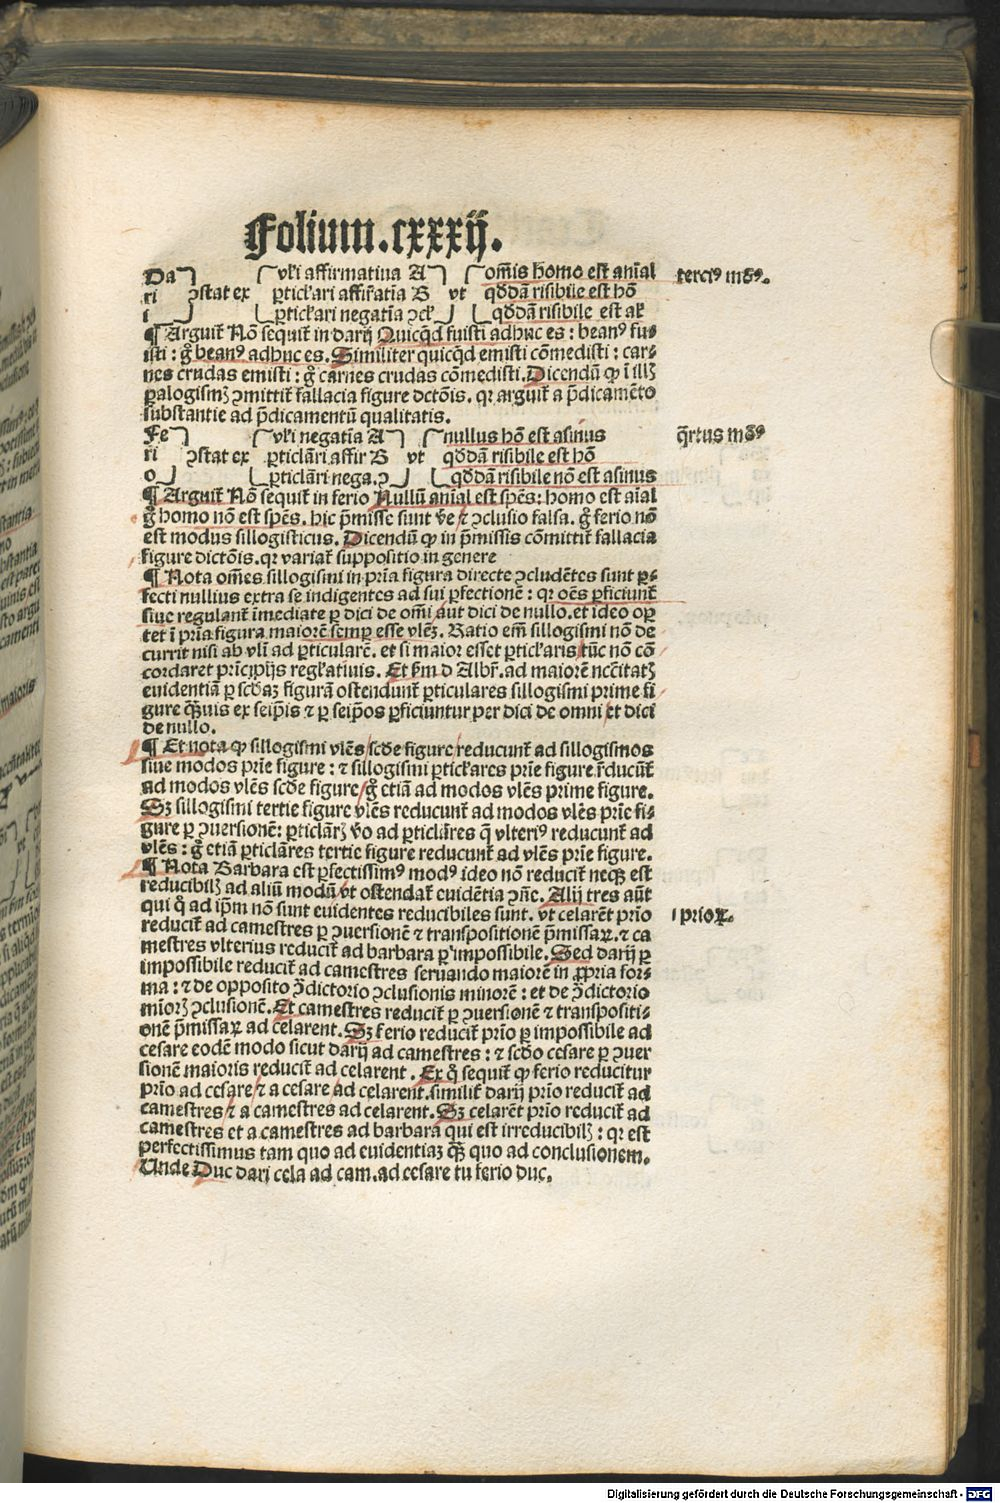 Folium.cxxxij.
Da vl'i affirmatiua A om̄is hōmo est anīal tercꝰ mōꝰ.
ri ꝯstat ex ꝑtickari affir̄atīa B vt qōdā risibile est hō
i ꝑtickari negatīa ꝯck qōdā risibile est ak
¶ Arguit᷑ Nō sequit᷑ in darij Quicqͥd fuisti adhuc es : beanꝰ fu⸗
isti : gͦ beanꝰ adhuc es. Similiter quicqͥd emisti cōmedisti : car⸗
nes crudas emisti : gͦ carnes crudas cōmedisti. Dicendū ꝙ ī illꝭ
ꝑalogismꝭ ꝯmittit᷑ fallacia figure dctōis. qꝛ arguit᷑ a p̄dicamēto
substantie ad p̄dicamentū qualitatis.
Fe vl'i negatīa A nullus hō est asinus q̄rtus mōꝰ
ri ꝯstat ex ꝑticlāri affir B vt qōdā risibile est hō
o ꝑticlāri nega.ꝯ qōdā risibile nō est asinus
¶ Arguit᷑ Nō sequit᷑ in ferio Nullū anīal est sp̄es: homo est aīal
gͦ homo nō est sp̄es. hic p̄misse sunt v̄e ⁊ ꝯclusio falsa. gͦ ferio nō
est modus sillogisticus. Dicendū ꝙ in p̄missis cōmittit᷑ fallacia
figure dictōis. qꝛ variat᷑ suppositio in genere
¶ Nota om̄es sillogismi in prīa figura directe ꝯcludētes sunt ꝑ⸗
fecti nullius extra se indigentes ad sui ꝑfectionē : qꝛ oēs ꝑficiunt᷑
siue regulant᷑ īmediate ꝑ dici de om̄i aut dici de nullo. et ideo opꝫ
tet ī prīa figura maiorē semꝑ esse vlēꝫ. Ratio em̄ sillogismi nō de
currit nisi ab vlī ad ꝑticularē. et si maior esset ꝑtickaris tūc nō cō
cordaret prīcipijs regk̄atiuis. Et ẜm d Albr̄. ad maiorē nccītatꝫ
euidentiā ꝑ scd̄aꝫ figurā ostendunt᷑ ꝑticulares sillogismi prime fi
gure qͣuis ex seip̄is ⁊ ꝑ seip̄os ꝑficiuntur per dici de omni et dici
de nullo.
¶ Et nota ꝙ sillogismi vlēs scd̄e figure reducunt᷑ ad sillogismos
siue modos prīe figure : ⁊ sillogismi ꝑtickares prīe figure r̄ducūt᷑
ad modos vlēs scd̄e figure gͦ etiā ad modos vlēs prime figure.
Sꝫ sillogismi tertie figure vlēs reducunt᷑ ad modos vlēs prīe fi⸗
gure ꝑ ꝯuersionē: ꝑticlārꝭ v̄o ad ꝑticlāres q̄ vlteriꝰ reducunt᷑ ad
vlēs : gͦ etiā ꝑticlāres tertie figure reducunt᷑ ad vlēs prīe figure.
¶ Nota Barbara est ꝑfectissimꝰ modꝰ ideo nō reducit᷑ neqꝫ est
reducibilꝭ ad aliū modū vt ostendat᷑ euidētia ꝯn̄e. Alij tres aūt
qui qͣ ad ip̄m nō sunt euidentes reducibiles sunt. vt celarēt prīo I prioꝝ.
reducit᷑ ad camestres ꝑ ꝯuersionē ⁊ transpositionē p̄missaꝝ. ⁊ ca
mestres vlterius reducit᷑ ad barbara ꝑ impossibile. Sed darij ꝑ
impossibile reducit᷑ ad camestres seruando maiorē in ꝓpria for⸗
ma : ⁊ de opposito ꝯ̄dictorio ꝯclusionis minorē : et de ꝯ̄dictorio
mīorꝭ ꝯclusionē. Et camestres reducit᷑ ꝑ ꝯuersionē ⁊ transpositi⸗
onē p̄missaꝝ ad celarent. Sꝫ ferio reducit᷑ prīo ꝑ impossibile ad
cesare eodē modo sicut darij ad camestres : ⁊ scd̄o cesare ꝑ ꝯuer
sionē maioris reducit᷑ ad celarent . Ex qͦ sequit᷑ ꝙ ferio reducitur
prīo ad cesare ⁊ a cesare ad celarent. similit᷑ darij prīo reducit᷑ ad
camestres ⁊ a camestres ad celarent. Sꝫ celarēt prīo reducit᷑ ad
camestres et a camestres ad barbara qui est irreducibilꝭ : qꝛ est
perfectissimus tam quo ad euidentiaꝫ qͣꝫ quo ad conclusionem.
Unde Duc dari cela ad cam. ad cesare tu ferio duc.
Digitalisierung gefördert durch die Deutsche Forschungsgemeinschaft - DFG